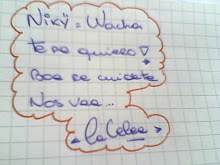 Nixi = Wacha
te re quiero
Boe se cuidate
Nos vae...
La Celee